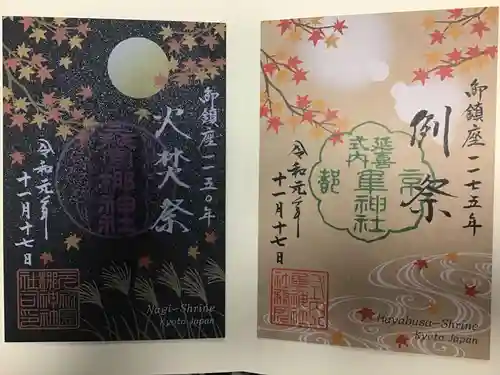 御鎮座一一五〇年
火焚祭
梛神社
令和元年
十一月十七日
Nagi-Shrine
Kyoto Japan
御鎮座一一七五年
例祭
延喜
式内
隼神社
京
都
令和元年
十一月十七日
Hayabusa-Shrine
Kyoto Japan